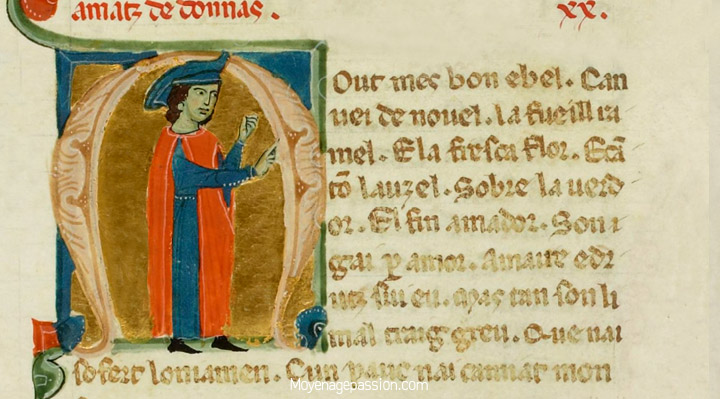 amatz de donnas . xx.
Mout mes bon ebel . Can
uei de nouel . la fueill ra
mel . E la fresca flor . Ecã
tõ lauzel . Sobre la uerd
or . El fin amador . Son
gai p amor . Amaire edr
utz sui eu . Mas tan son li
mal traig greu . Que nai
sofert loniamen . Cun pauc nai camiat mon
Moyenagepassion.com